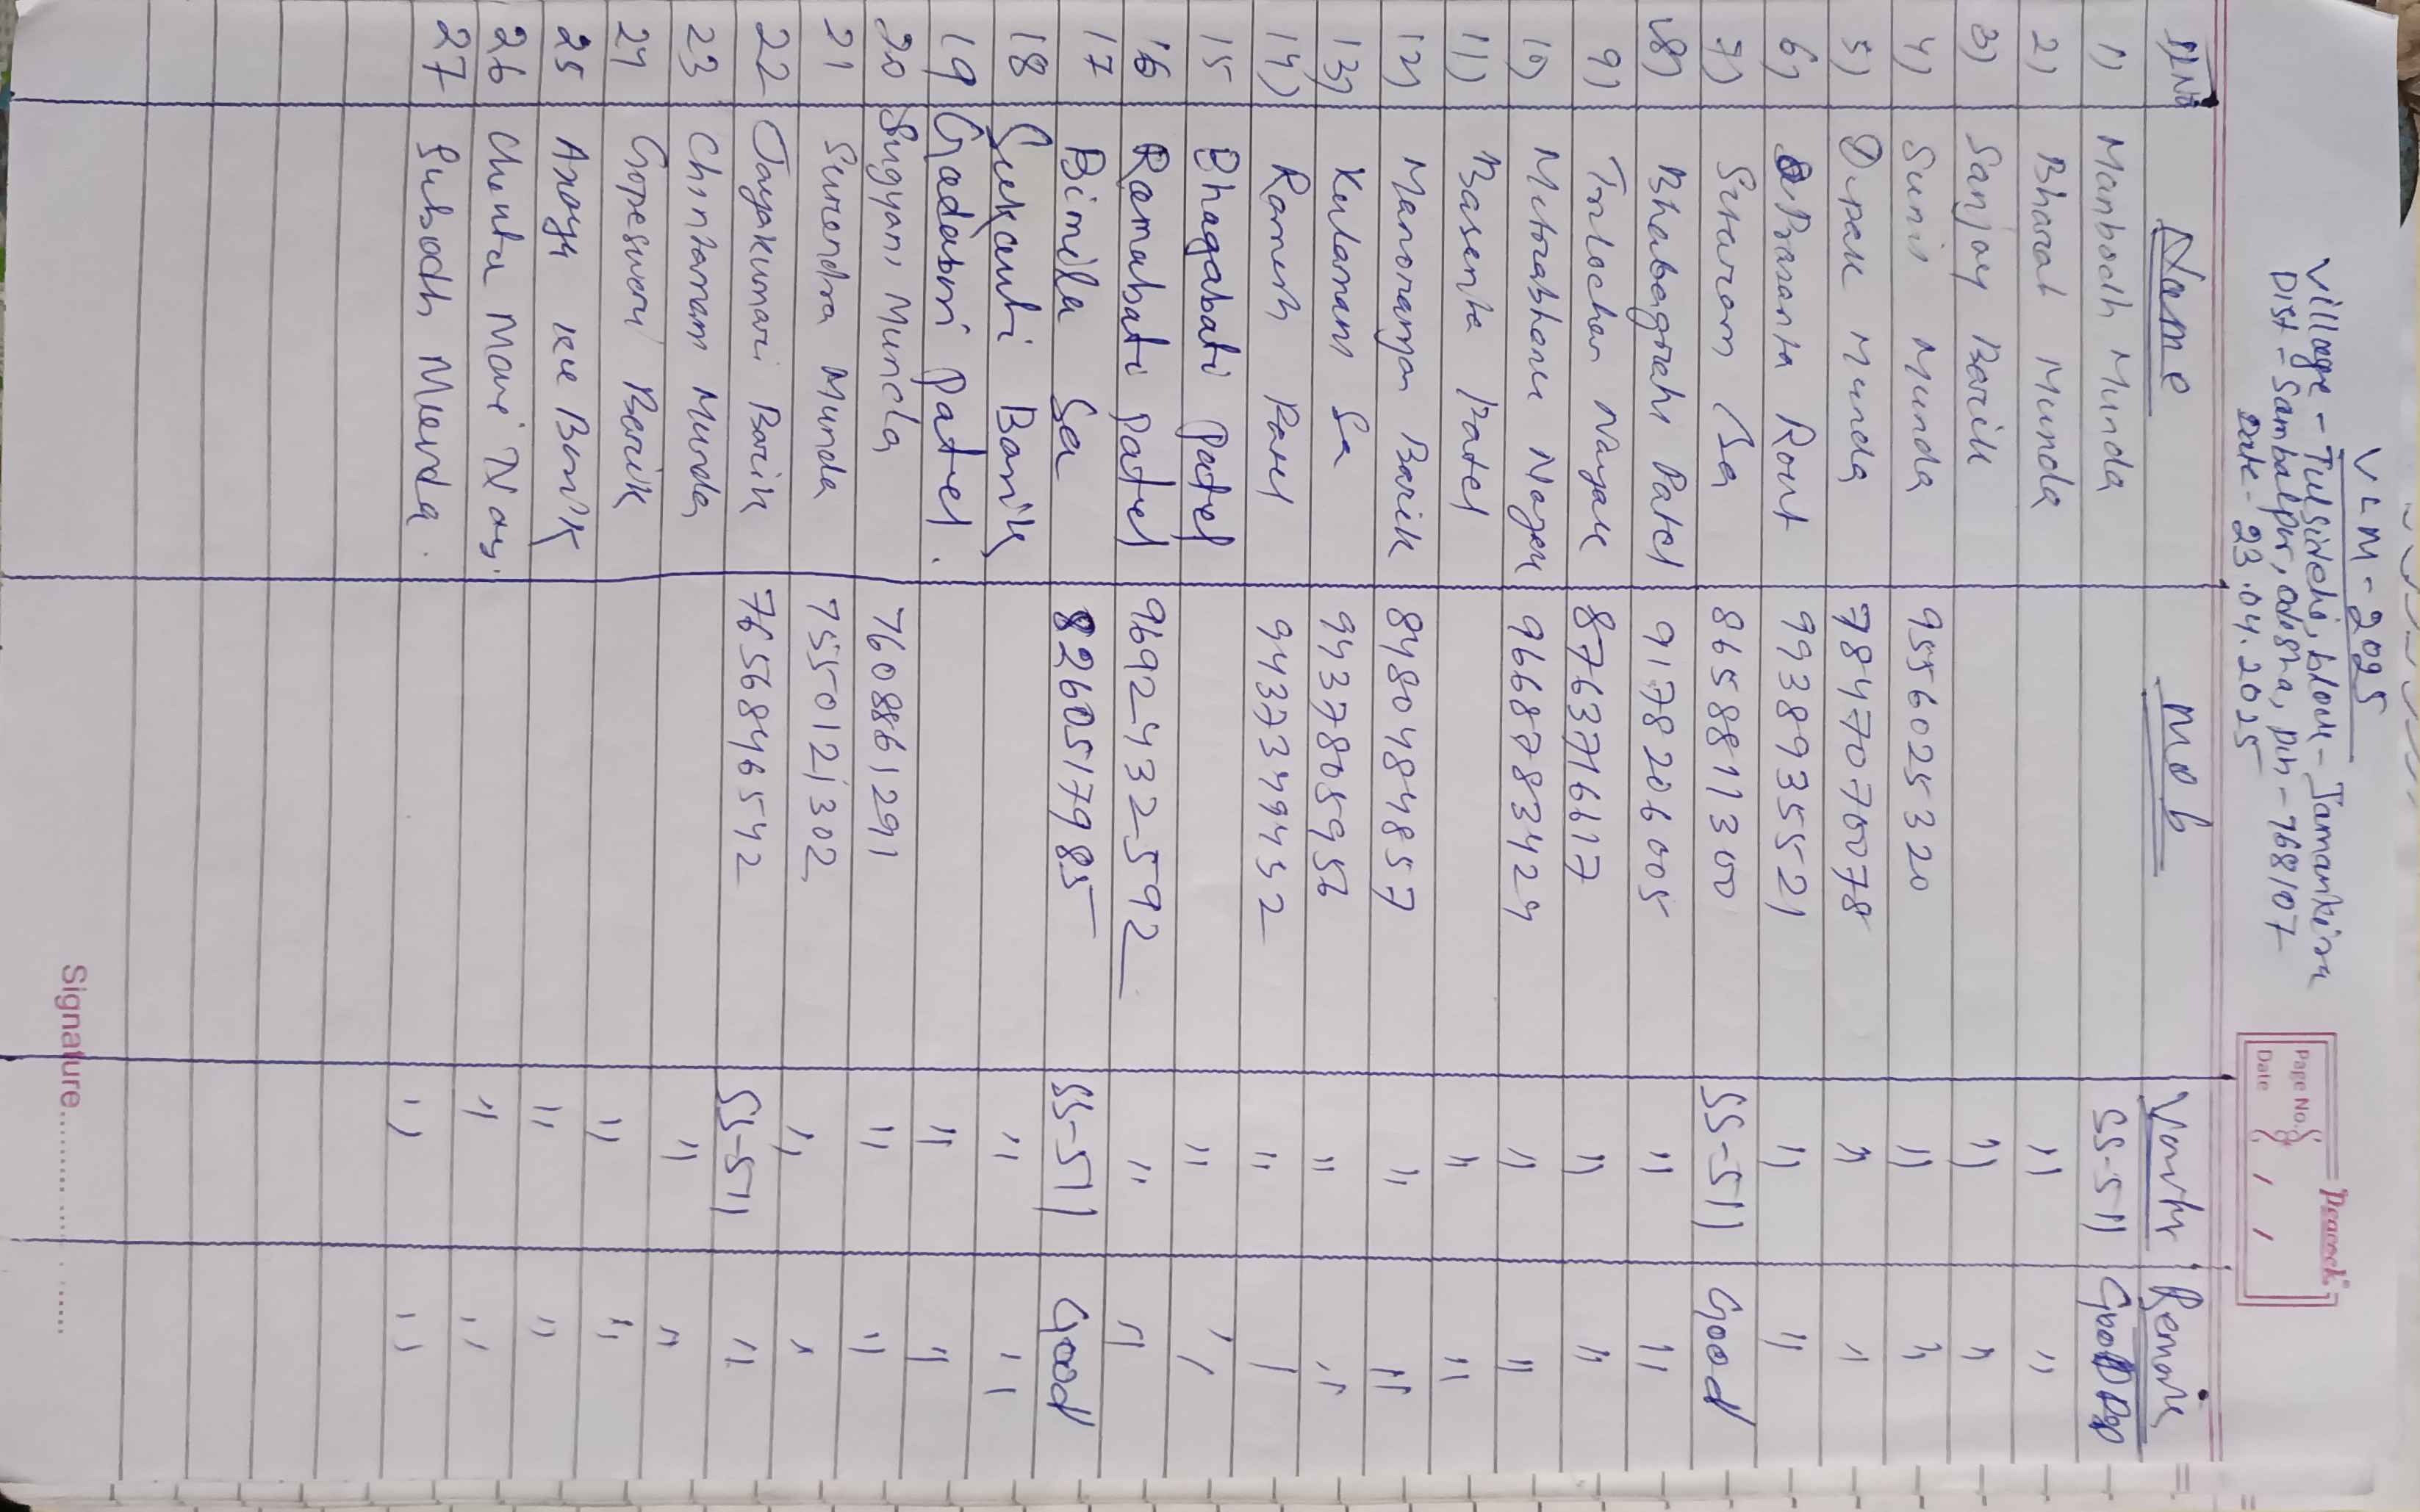 VLM-2025
Village - Tulsidehi, block - Jamankira
Dist - Sambalpur, odisha, pin - 768107
Date - 23.04.2025
Peacock
Page No.
Date / /
Sl No Name Mob Remark
1) Manbodh Munda SS-511 Good
2) Bharat Munda " "
3) Sanjay Barik " "
4) Sunil Munda 9556025320 " "
5) Dipak Munda 7847070078 " "
6) Prasanta Rout 9938935521 " "
7) Sitaram Sa 8658811300 SS-511 Good
8) Bhabagrahi Patel 9178206005 " "
9) Trilochan Nayak 8763716617 " "
10) Mitrabhanu Nayak 9668783424 " "
11) Basanta Patel " "
12) Manoranjan Barik 8480484857 " "
13) Kulamani Sa 9437805956 " "
14) Ramesh Patel 9437349432 " "
15 Bhagabati Patel " "
16 Ramabati Patel 9692432592 " "
17 Bimila Sa 8260517985 SS-511 Good
18 Sukanti Barik " "
19 Gadabari Patel. " "
20 Sugyani Munda 7608861291 " "
21 Surendra Munda 7550121302 " "
22 Jayakumari Barik 7656846542 SS-511 "
23 Chintamani Munda " "
24 Gopeswari Barik " "
25 Barik " "
26 " "
27 Subodh Munda. " "
Signature